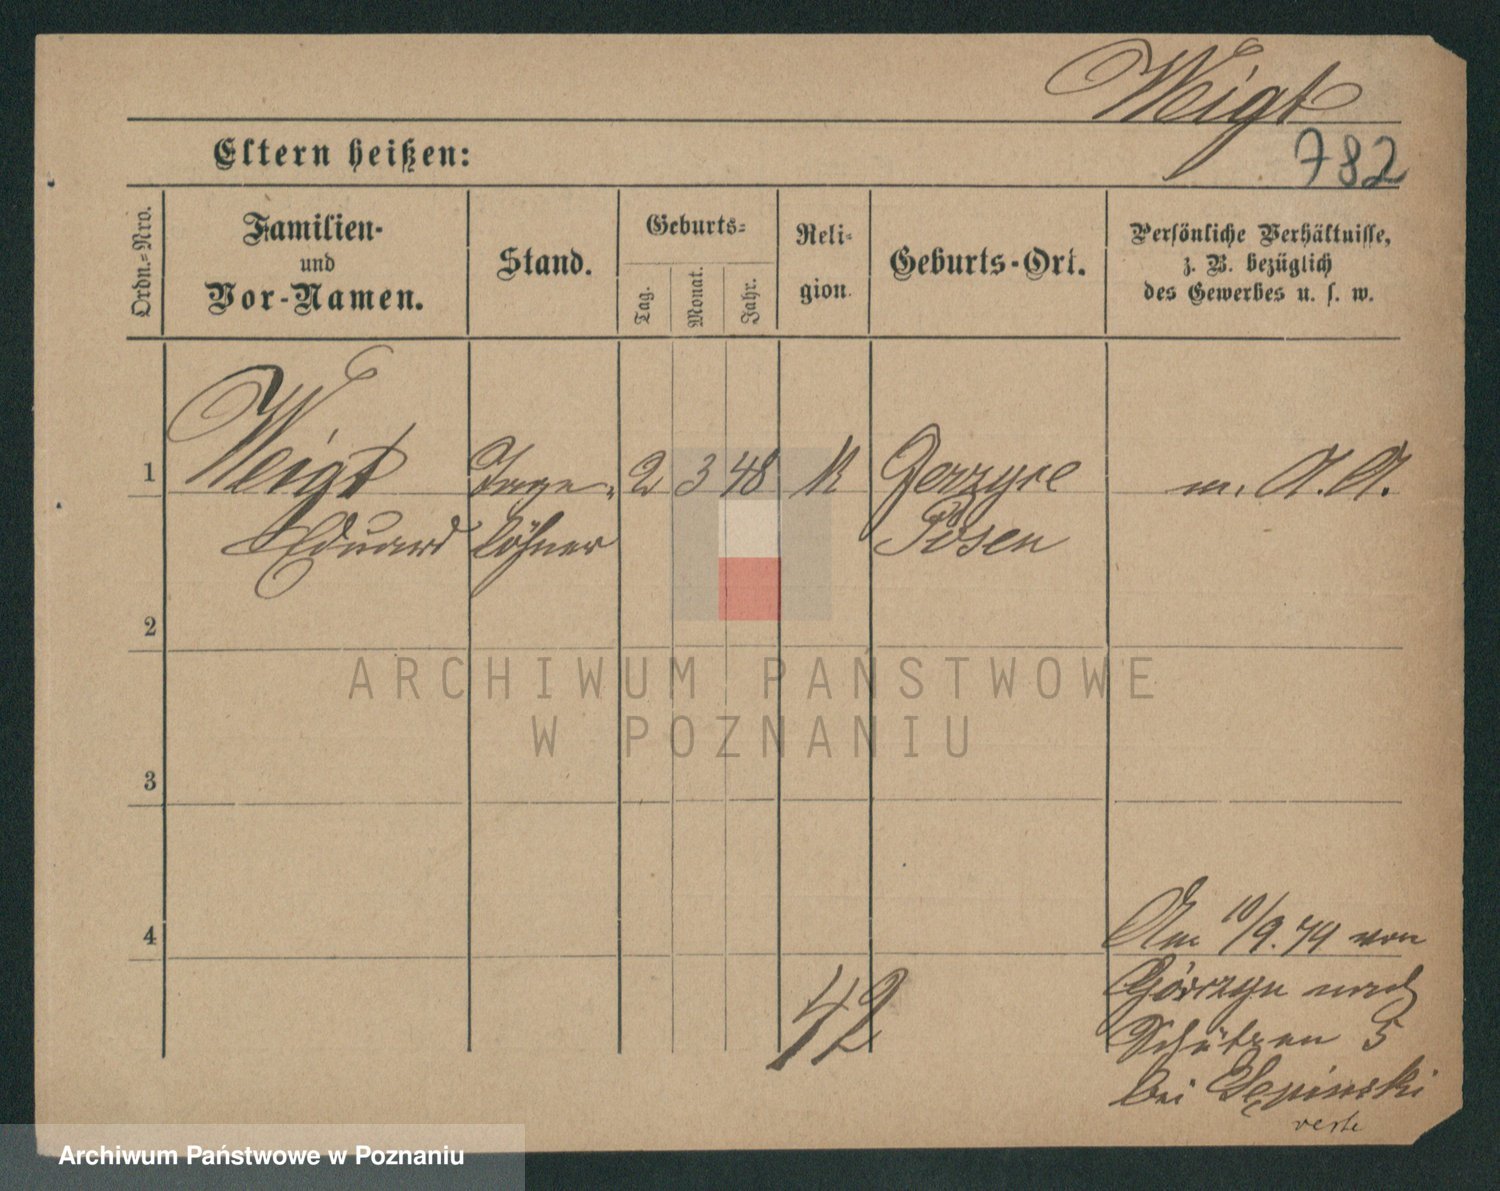 Weigt
782
Eltern heißen:
Ordn.=Nro.
Familien-
und
Vor-Namen.
Stand.
Geburts=
Tag.
Monat.
Jahr.
Reli=
gion.
Geburts-Ort.
Persönliche Verhältnisse,
z. B. bezüglich
des Gewerbes u. s. w.
1
Weigt
Eduard
Tage-
löhner
2 3 48
K
Posen
m. A. A.
2
3
4
Am 10/9.79 von
nach
Schützen 5
bei
42
verte
ARCHIWUM PAŃSTWOWE
W POZNANIU
Archiwum Państwowe w Poznaniu